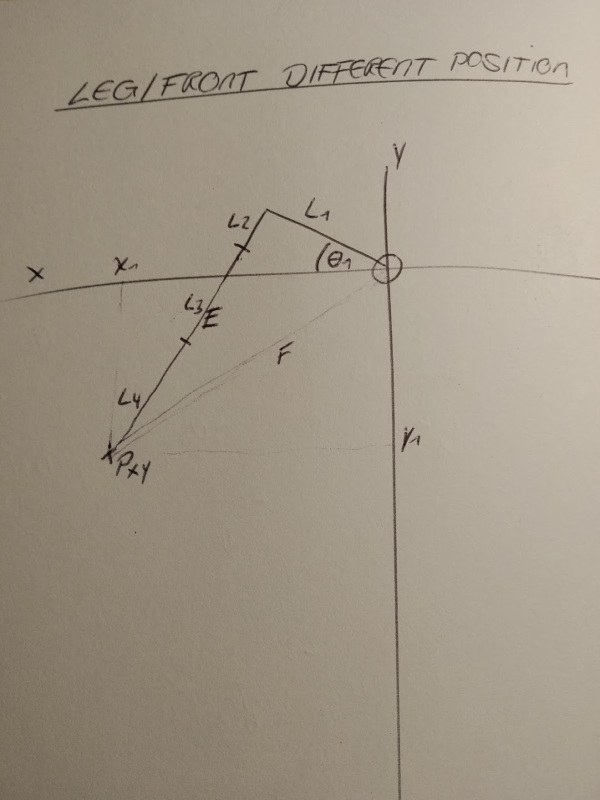 LEG/FRONT DIFFERENT POSITION
Y
L2 L1
X X1 θ1
L3
E
F
L4
Y1
Pxy